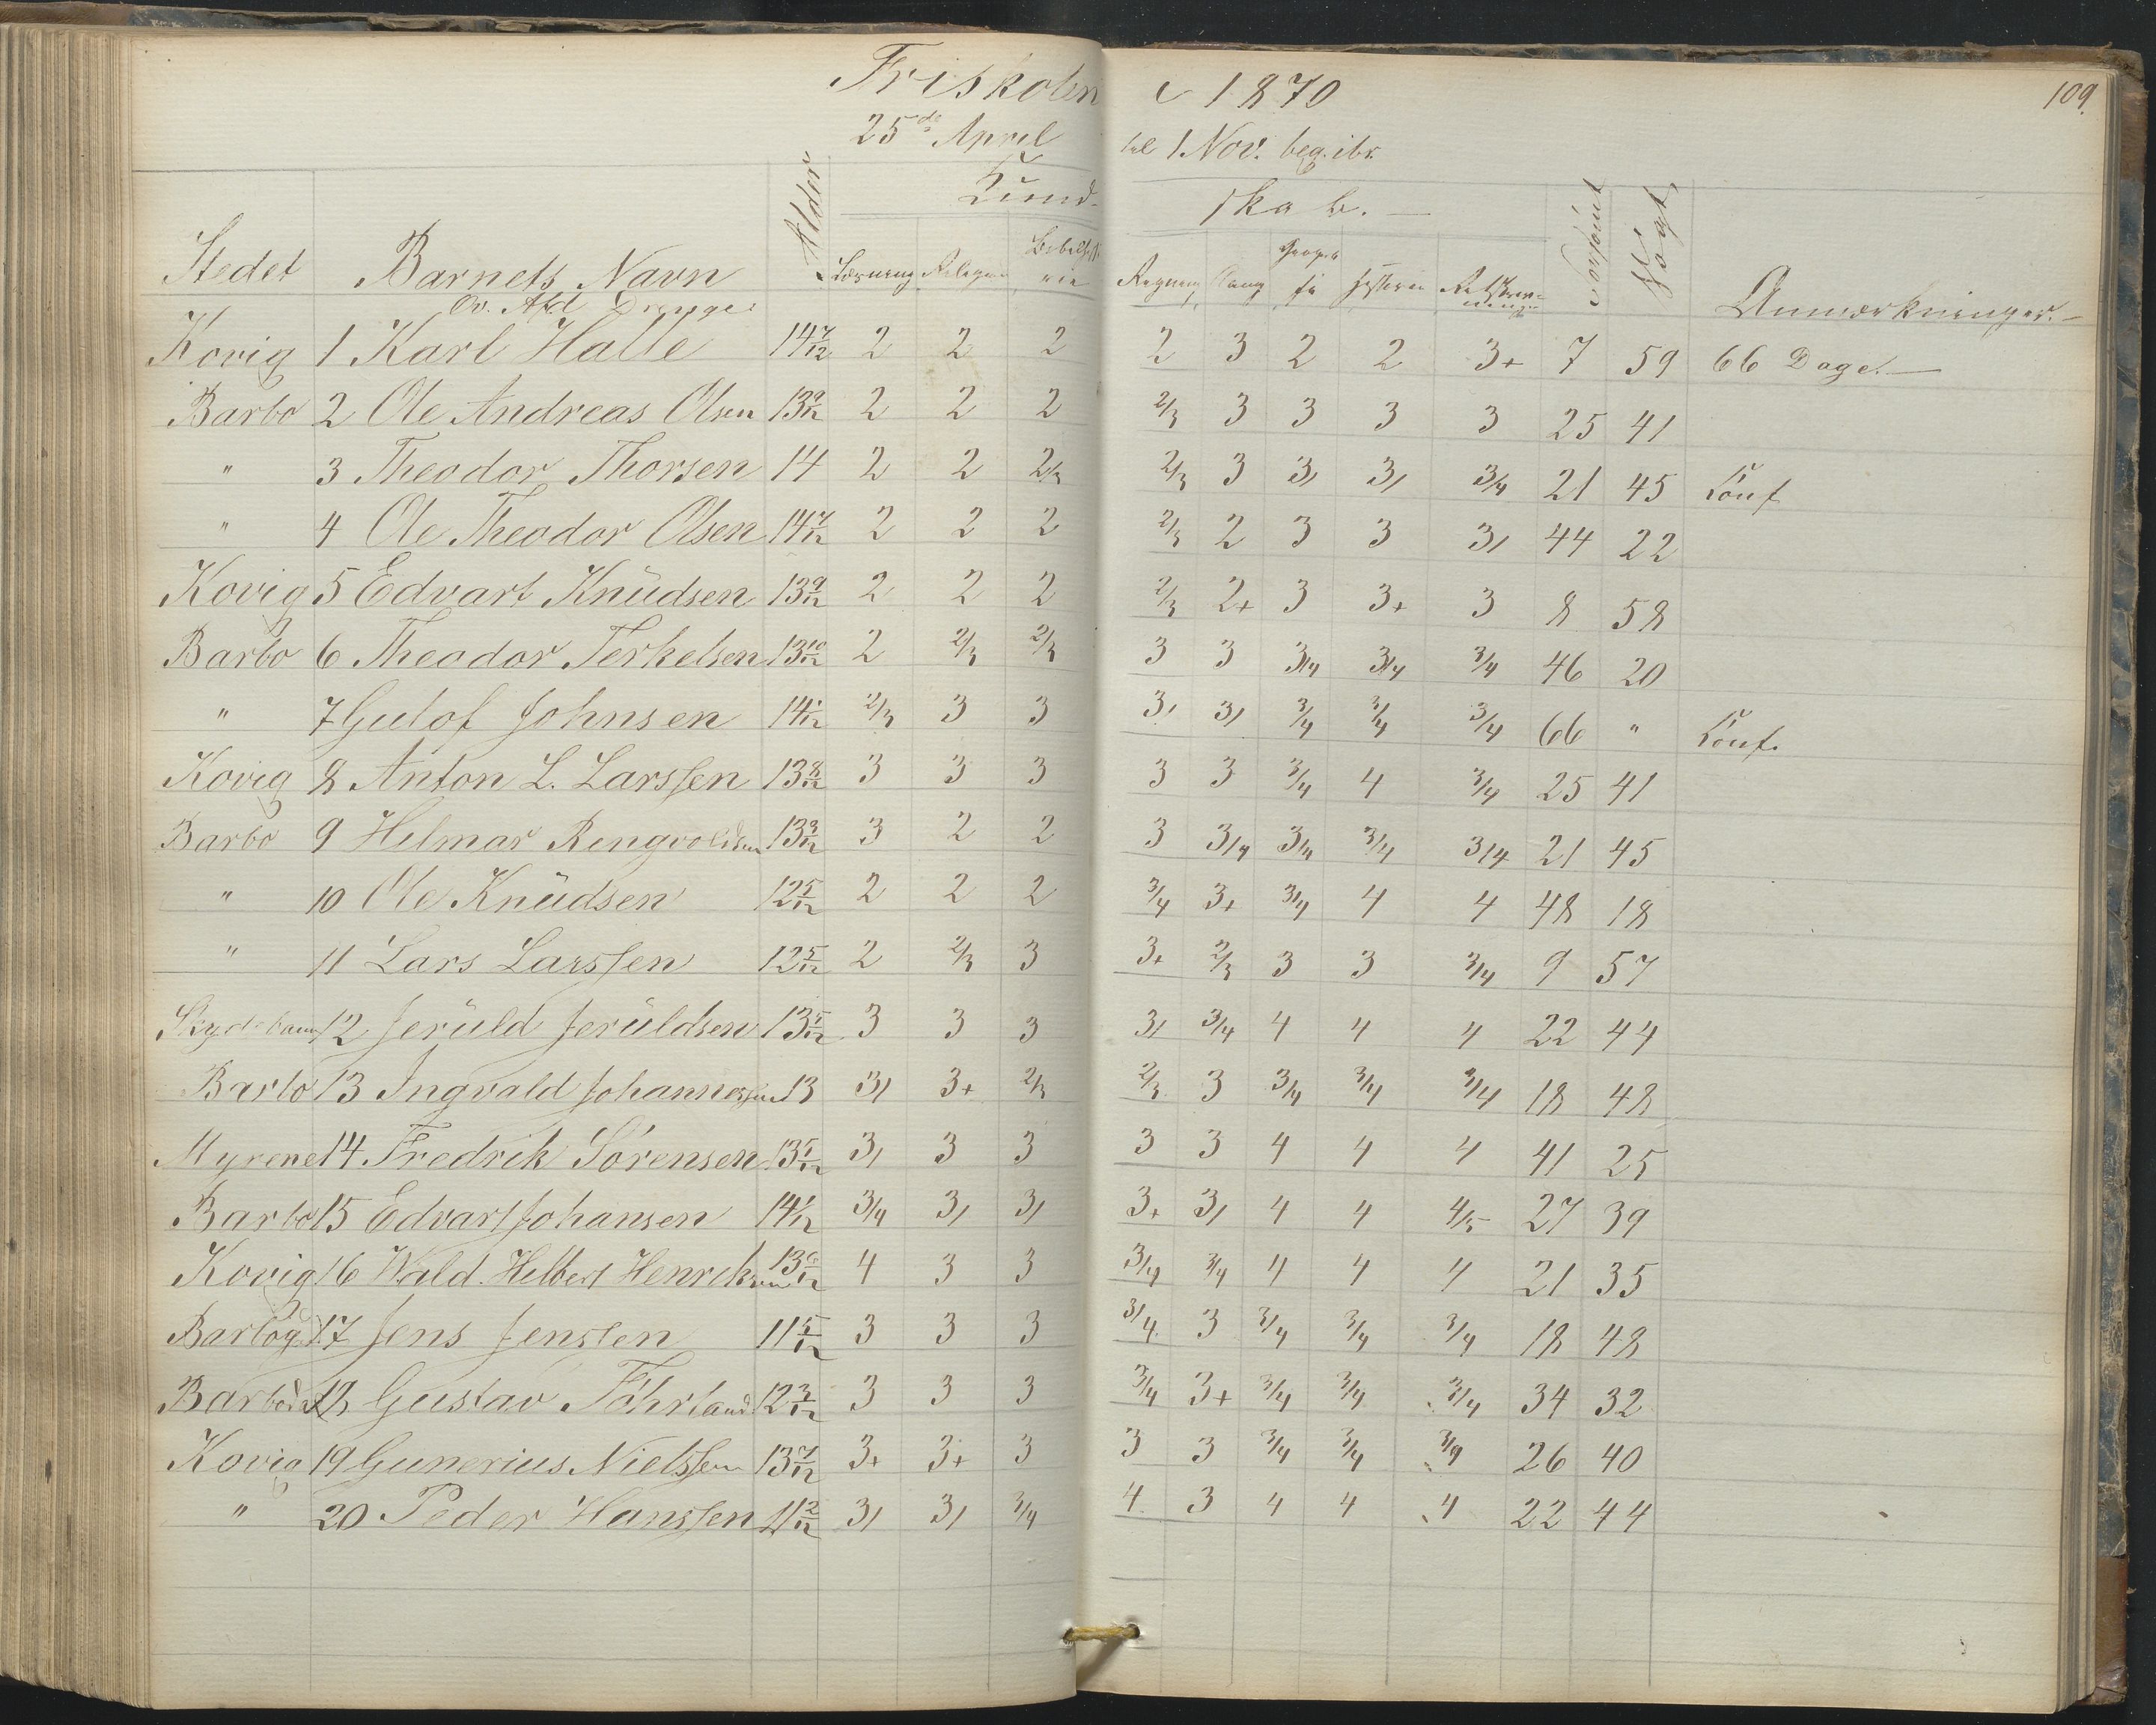 Friskolen i 1870 109.
25de April til 1 Nov. beg. ibr.
Kund- skab.
Stedet Barnets Navn Alder Læsning Religion Bibelhisto rie Regning Sang Geogra fi Historie Retskriv- ning Forsömt Sögt Anmærkninger.
Öv. Afd Drenge
Kovig 1 Karl Halle 14 7/12 2 2 2 2 3 2 2 3+ 7 59 66 Dage.
Barbo 2 Ole Andreas Olsen 13 9/12 2 2 2 2/3 3 3 3 3 25 41
" 3 Theodor Thorsen 14 2 2 2/3 2/3 3 3/ 3/ 3/4 21 45 Conf
" 4 Ole Theodor Olsen 14 7/12 2 2 2 2/3 2 3 3 3/ 44 22
Kovig 5 Edvart Knüdsen 13 9/12 2 2 2 2/3 2+ 3 3+ 3 8 58
Barbo 6 Theodor Terkelsen 13 10/12 2 2/3 2/3 3 3 3/4 3/4 3/4 46 20
" 7 Gulof Johnsen 14 1/12 2/3 3 3 3/ 3/ 3/4 3/4 3/4 66 " Conf.
Kovig 8 Anton L. Larssen 13 8/12 3 3 3 3 3 3/4 4 3/4 25 41
Barbo 9 Hilmar Ringvoldsen 13 3/12 3 2 2 3 3/4 3/4 3/4 3/4 21 45
" 10 Ole Knüdsen 12 5/12 2 2 2 3/4 3+ 3/4 4 4 48 18
" 11 Lars Larssen 12 5/12 2 2/3 3 3+ 2/3 3 3 3/4 9 57
Skydebanen 12 Jerüld Jerüldsen 13 5/12 3 3 3 3/ 3/4 4 4 4 22 44
Barbo 13 Ingvald Johannessen 13 3/ 3+ 2/3 2/3 3 3/4 3/4 3/4 18 48
Myrene 14 Fredrik Sörensen 13 5/12 3/ 3 3 3 3 4 4 4 41 25
Barbo 15 Edvart Johansen 14 1/12 3/4 3/ 3/ 3+ 3/ 4 4 4/5 27 39
Kovig 16 Wald. Hilbert Henriksen 13 6/12 4 3 3 3/4 3/4 4 4 4 21 35
Barbog. 17 Jens Jenssen 11 5/12 3 3 3 3/4 3 3/4 3/4 3/4 18 48
Barbo 18 Gustav Föhrland 12 3/12 3 3 3 3/4 3+ 3/4 3/4 3/4 34 32
Kovig 19 Gunerius Nielssen 13 7/12 3+ 3+ 3 3 3 3/4 3/4 3/4 26 40
" 20 Peder Hanssen 11 2/12 3/ 3/ 3/4 4 3 4 4 4 22 44